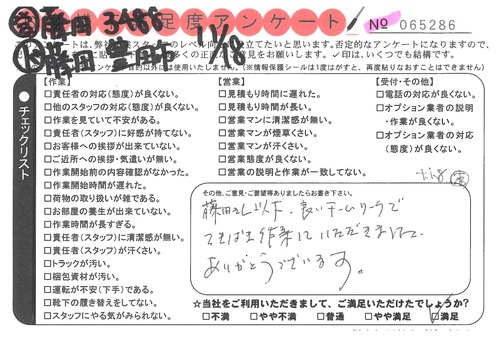 足度アンケート
No 065286
このアンケートは、弊社
チェックリスト
【作業】
□責任者の対応(態度)が良くない。
□他のスタッフの対応(態度)が良くない。
□作業を見ていて不安がある。
□責任者(スタッフ)に好感が持てない。
□お客様への挨拶が出来ていない。
□ご近所への挨拶・気遣いが無い。
□作業開始前の内容確認がなかった。
□作業開始時間が遅れた。
□荷物の取り扱いが雑である。
□お部屋の養生が出来ていない。
□作業時間が長すぎる。
□責任者(スタッフ)に清潔感が無い。
□責任者(スタッフ)が汗くさい。
□トラックが汚い。
□梱包資材が汚い。
□運転が不安(下手)である。
□靴下の履き替えをしてない。
□スタッフにやる気がみられない。
【営業】
□見積もり時間に遅れた。
□見積もり時間が長い。
□営業マンに清潔感が無い。
□営業マンが煙草くさい。
□営業マンが汗くさい。
□営業態度が良くない。
□営業の説明と作業が一致してない。
【受付・その他】
□電話の対応が良くない。
□オプション業者の説明
・作業が良くない。
□オプション業者の対応
(態度)が良くない。
その他、ご意見・ご要望等ありましたらお書き下さい。
藤田さん以下、良いチームワークで
てきぱき作業していただきまして、
ありがとうございます。
☆当社をご利用いただきまして、ご満足いただけたでしょうか?
□不満 □やや不満 □普通 □やや満足 □満足